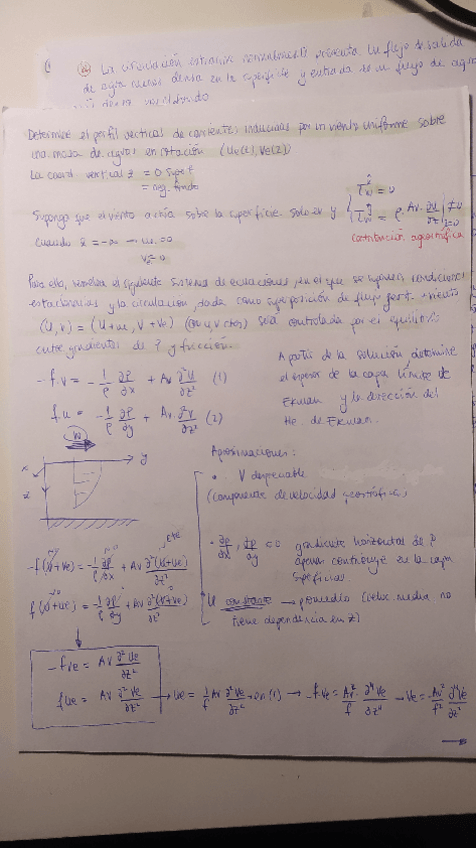 La circulación estuarina
de agua menos densa en la superficie y entrada de un flujo de agua
Determine el perfil vertical de corrientes inducidas por un viento uniforme sobre
una masa de agua en rotación (ue(z), ve(z))
La coord vertical z = 0 superf
= neg. fondo
Suponga que el viento actúa sobre la superficie. Solo en y { τ_w^x = 0
τ_w^y = ρ · Av · ∂v/∂z |z=0 ≠ 0
cuando z = -∞ → ue = 0
ve = 0
contribución ageostrófica
Para ello, resuelva el siguiente sistema de ecuaciones, en el que se suponen condiciones
estacionarias y la circulación, dada como superposición de flujo geost. + viento
(u, v) = (U + ue, V + ve) (con U, V ctes) será controlada por el equilibrio
entre gradientes de P y fricción.
- f · v = - 1/ρ ∂P/∂x + Av ∂²u/∂z² (1)
f u = - 1/ρ ∂P/∂y + Av ∂²v/∂z² (2)
A partir de la solución, determine
el espesor de la capa límite de
Ekman y la dirección del
tte. de Ekman.
W
x y
z
Aproximaciones:
• V despreciable
(componente de velocidad geostrófica)
• ∂P/∂x, ∂P/∂y ≈ 0 gradientes horizontales de P
apenas contribuye en la capa
superficial
U constante → promedio (veloc. media no
tiene dependencia en z)
- f (V + ve) = - 1/ρ ∂P/∂x + Av ∂²(U+ue)/∂z²
f (U + ue) = - 1/ρ ∂P/∂y + Av ∂²(V+ve)/∂z²
- f ve = Av ∂² ve/∂z²
f ue = Av ∂² ve/∂z² → ue = 1/f Av ∂² ve/∂z² → en (1) → - f ve = Av²/f ∂⁴ ve/∂z⁴ → ve = - Av²/f² ∂⁴ ve/∂z⁴